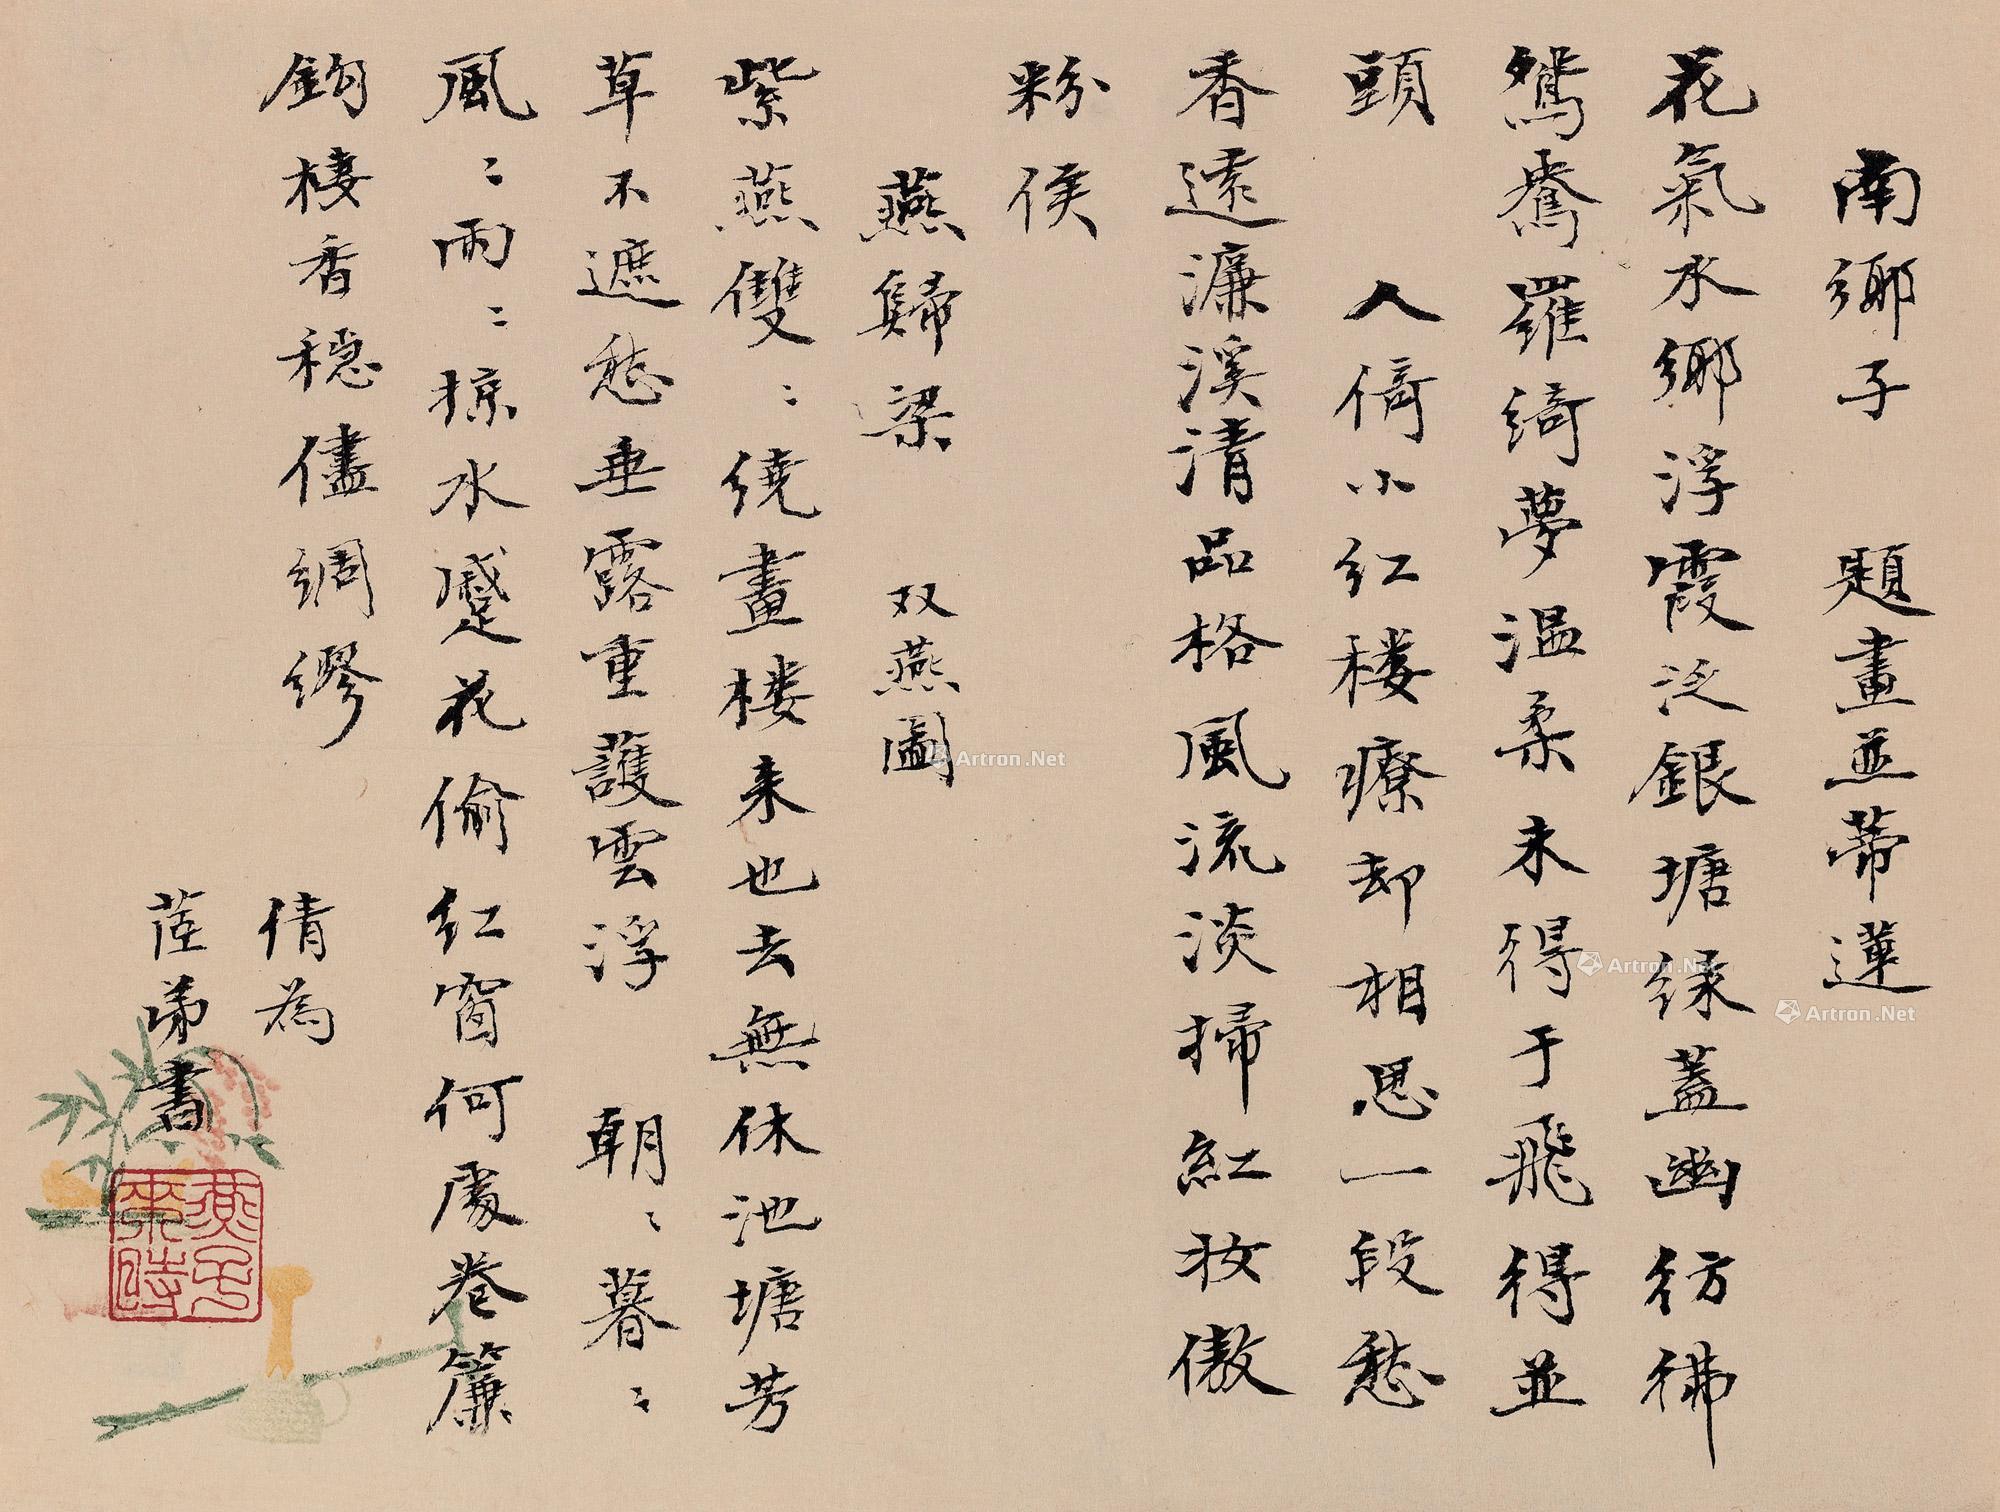 南鄉子　題畫並蒂蓮
花氣水鄉浮霞泛銀塘緑蓋幽彷彿
鴛鴦羅綺夢溫柔未得于飛得並
頭　人倚小紅楼療却相思一段愁
香遠濂溪清品格風流淡掃紅妝傲
粉侯
燕歸梁　双燕圖
紫燕雙〻繞畫楼来也去無休池塘芳
草不遮愁垂露重護雲浮　朝〻暮〻
風〻雨〻掠水蹙花偷紅窗何處卷簾
鈎棲香穩儘綢繆
倩為
茝弟書
燕子
來時
Artron.Net
Artron.Net
Artron.Net